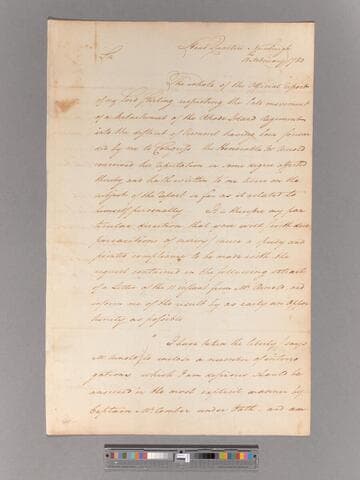 Head Quarters Newburgh
Sir February 1783
The whole of the Official report
of my Lord Stirling respecting the late movement
of a detachment of the Rhode Island Regiment
into the district of Vermont having been forwar
ded by me to Congress the Honourable Mr Arnold
conceived his reputation in some degree affected
thereby and hath written to me here on the
subject of the Report so far as it related to
himself personally It is therefore my par
ticular direction that you will with due
precautions of cause a full and
pointed compliance to be made with the
request contained in the following extract
of a Letter of the 11 instant from Mr Arnold, and
inform me of the result by as early an oppor
tunity as possible
I have taken the liberty (says
Mr Arnold) to enclose a number of interro
gations which I am desirous should be
answered in the most explicit manner by
Captain McComber under Oath, and am